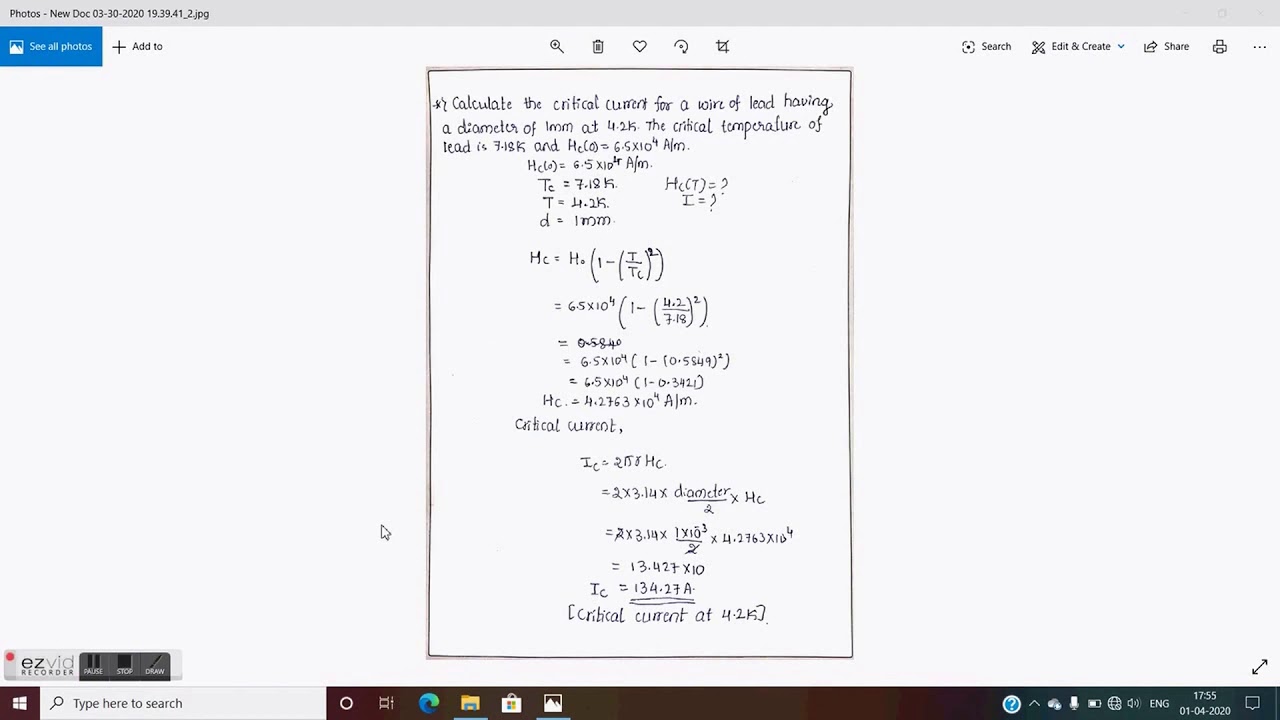 Photos - New Doc 03-30-2020 19.39.41_2.jpg
See all photos
Add to
Search
Edit & Create
Share
*) Calculate the critical current for a wire of lead having
a diameter of 1mm at 4.2K. The critical temperature of
lead is 7.18K and Hc(0) = 6.5×10⁴ A/m.
Hc(0) = 6.5×10⁴ A/m.
Tc = 7.18K.
Hc(T) = ?
T = 4.2K.
I = ?
d = 1mm.
Hc = H₀ (1 - (T/Tc)²)
= 6.5×10⁴ (1 - (4.2/7.18)²)
= 0.5840
= 6.5×10⁴ (1 - (0.5849)²)
= 6.5×10⁴ (1 - 0.3421)
Hc. = 4.2763×10⁴ A/m.
Critical current,
Ic = 2πr Hc.
= 2×3.14× diameter/2 × Hc
= 2×3.14× 1×10⁻³/2 × 4.2763×10⁴
= 13.427×10
Ic = 134.27A.
[Critical current at 4.2K].
ezvid
RECORDER
PAUSE
STOP
DRAW
Type here to search
ENG
17:55
01-04-2020